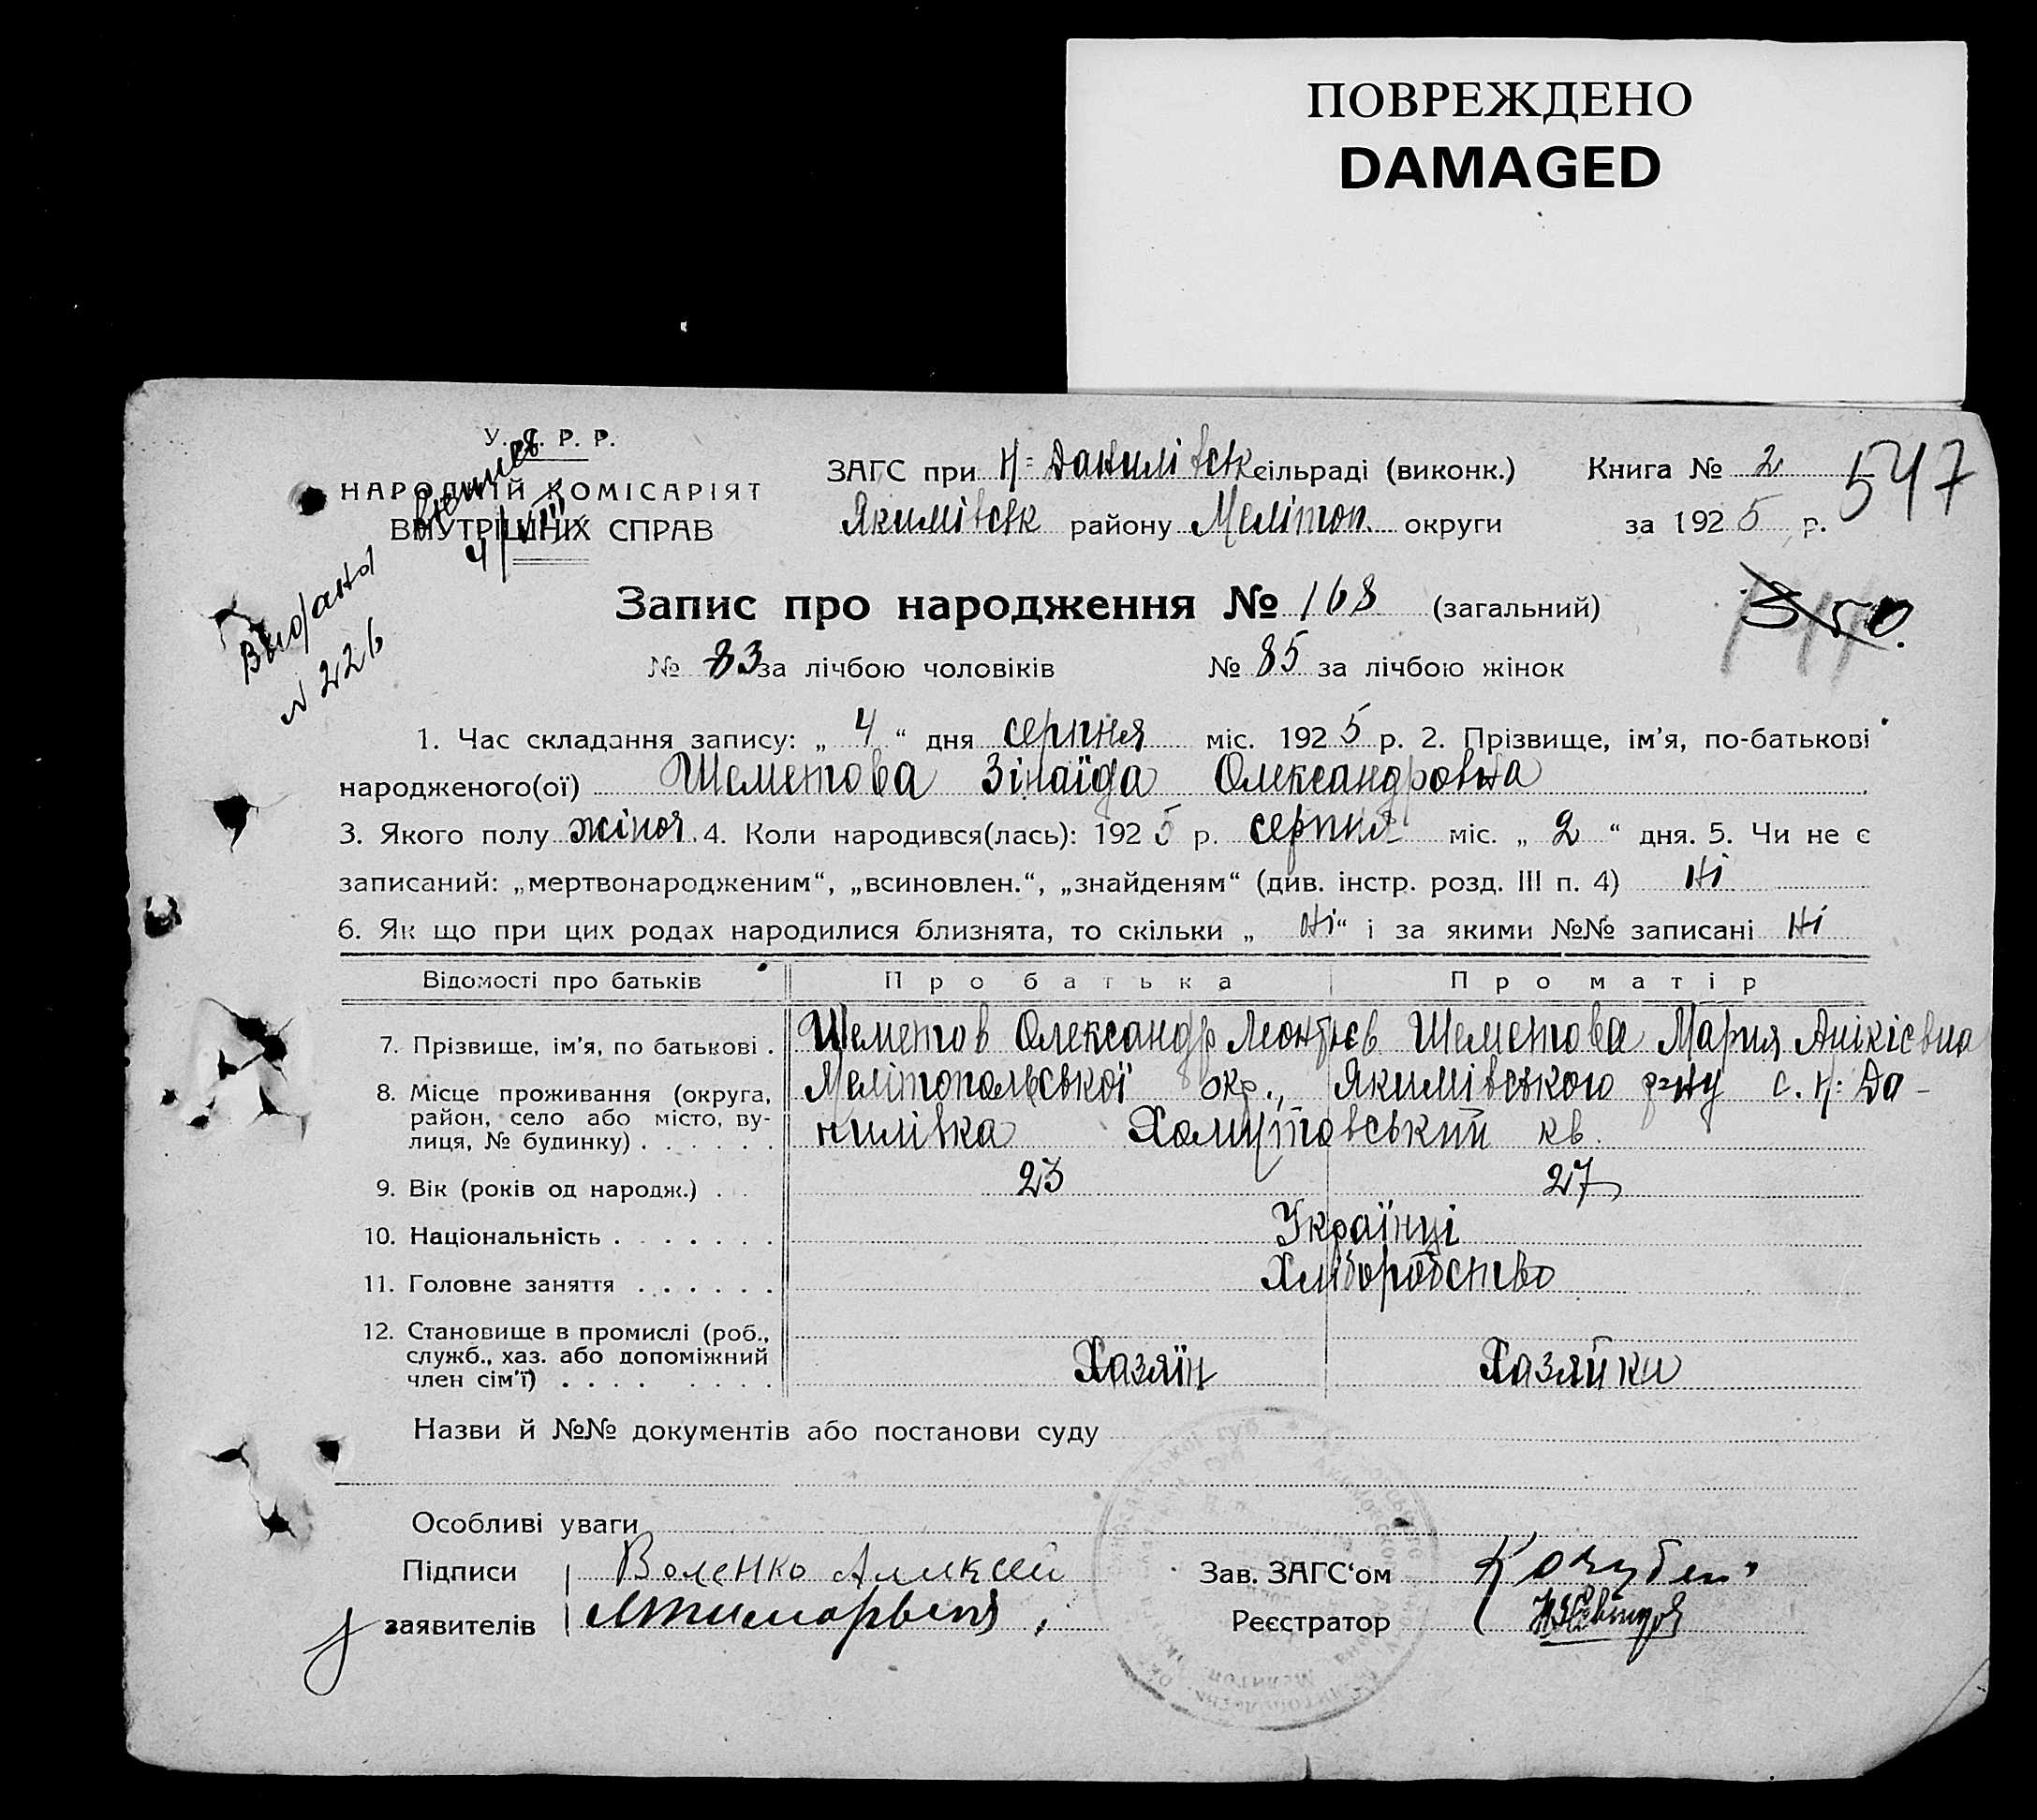 ПОВРЕЖДЕНО
DAMAGED
У. С. Р. Р.
НАРОДНІЙ КОМІСАРІЯТ
ВНУТРІШНІХ СПРАВ
ЗАГС при Н-Данилівск сільраді (виконк.)
Якимівск району Меліток. округи
Книга № 2
за 1925 р.
547
Видана
№ 226
4/VIII
Запис про народження № 168 (загальний)
350.
№ 83 за лічбою чоловіків № 85 за лічбою жінок
1. Час складання запису: „ 4 “ дня серпня міс. 1925 р. 2. Прізвище, ім’я, по-батькові
народженого(ої) Шеметова Зінаїда Олександровна
3. Якого полу жіноя. 4. Коли народився(лась): 1925 р. серпня міс. „ 2 “ дня. 5. Чи не є
записаний: „мертвонародженим“, „всиновлен.“, „знайденям“ (див. інстр. розд. III п. 4) Ні
6. Як що при цих родах народилися близнята, то скільки „ Ні “ і за якими №№ записані Ні
Відомості про батьків Про батька Про матір
7. Прізвище, ім’я, по батькові . Шеметов Олександр Леонтієв Шеметова Мария Анікієвна
8. Місце проживання (округа, Мелітопольської окр., Якимівського р-ну с. Н: Да-
район, село або місто, ву-
лиця, № будинку) . . . . . . нилівка Хомутовський кв.
9. Вік (років од народж.) . . 23 27
10. Національність . . . . . . . Українці
11. Головне заняття . . . . . . Хліборобство
12. Становище в промислі (роб.,
служб., хаз. або допоміжний
член сім’ї) . . . . . . . . Хазяїн Хазяйки
Назви й №№ документів або постанови суду
Особливі уваги
Підписи Воленко Алексей
заявителів
Зав. ЗАГС‘ом Кочубей
Реєстратор